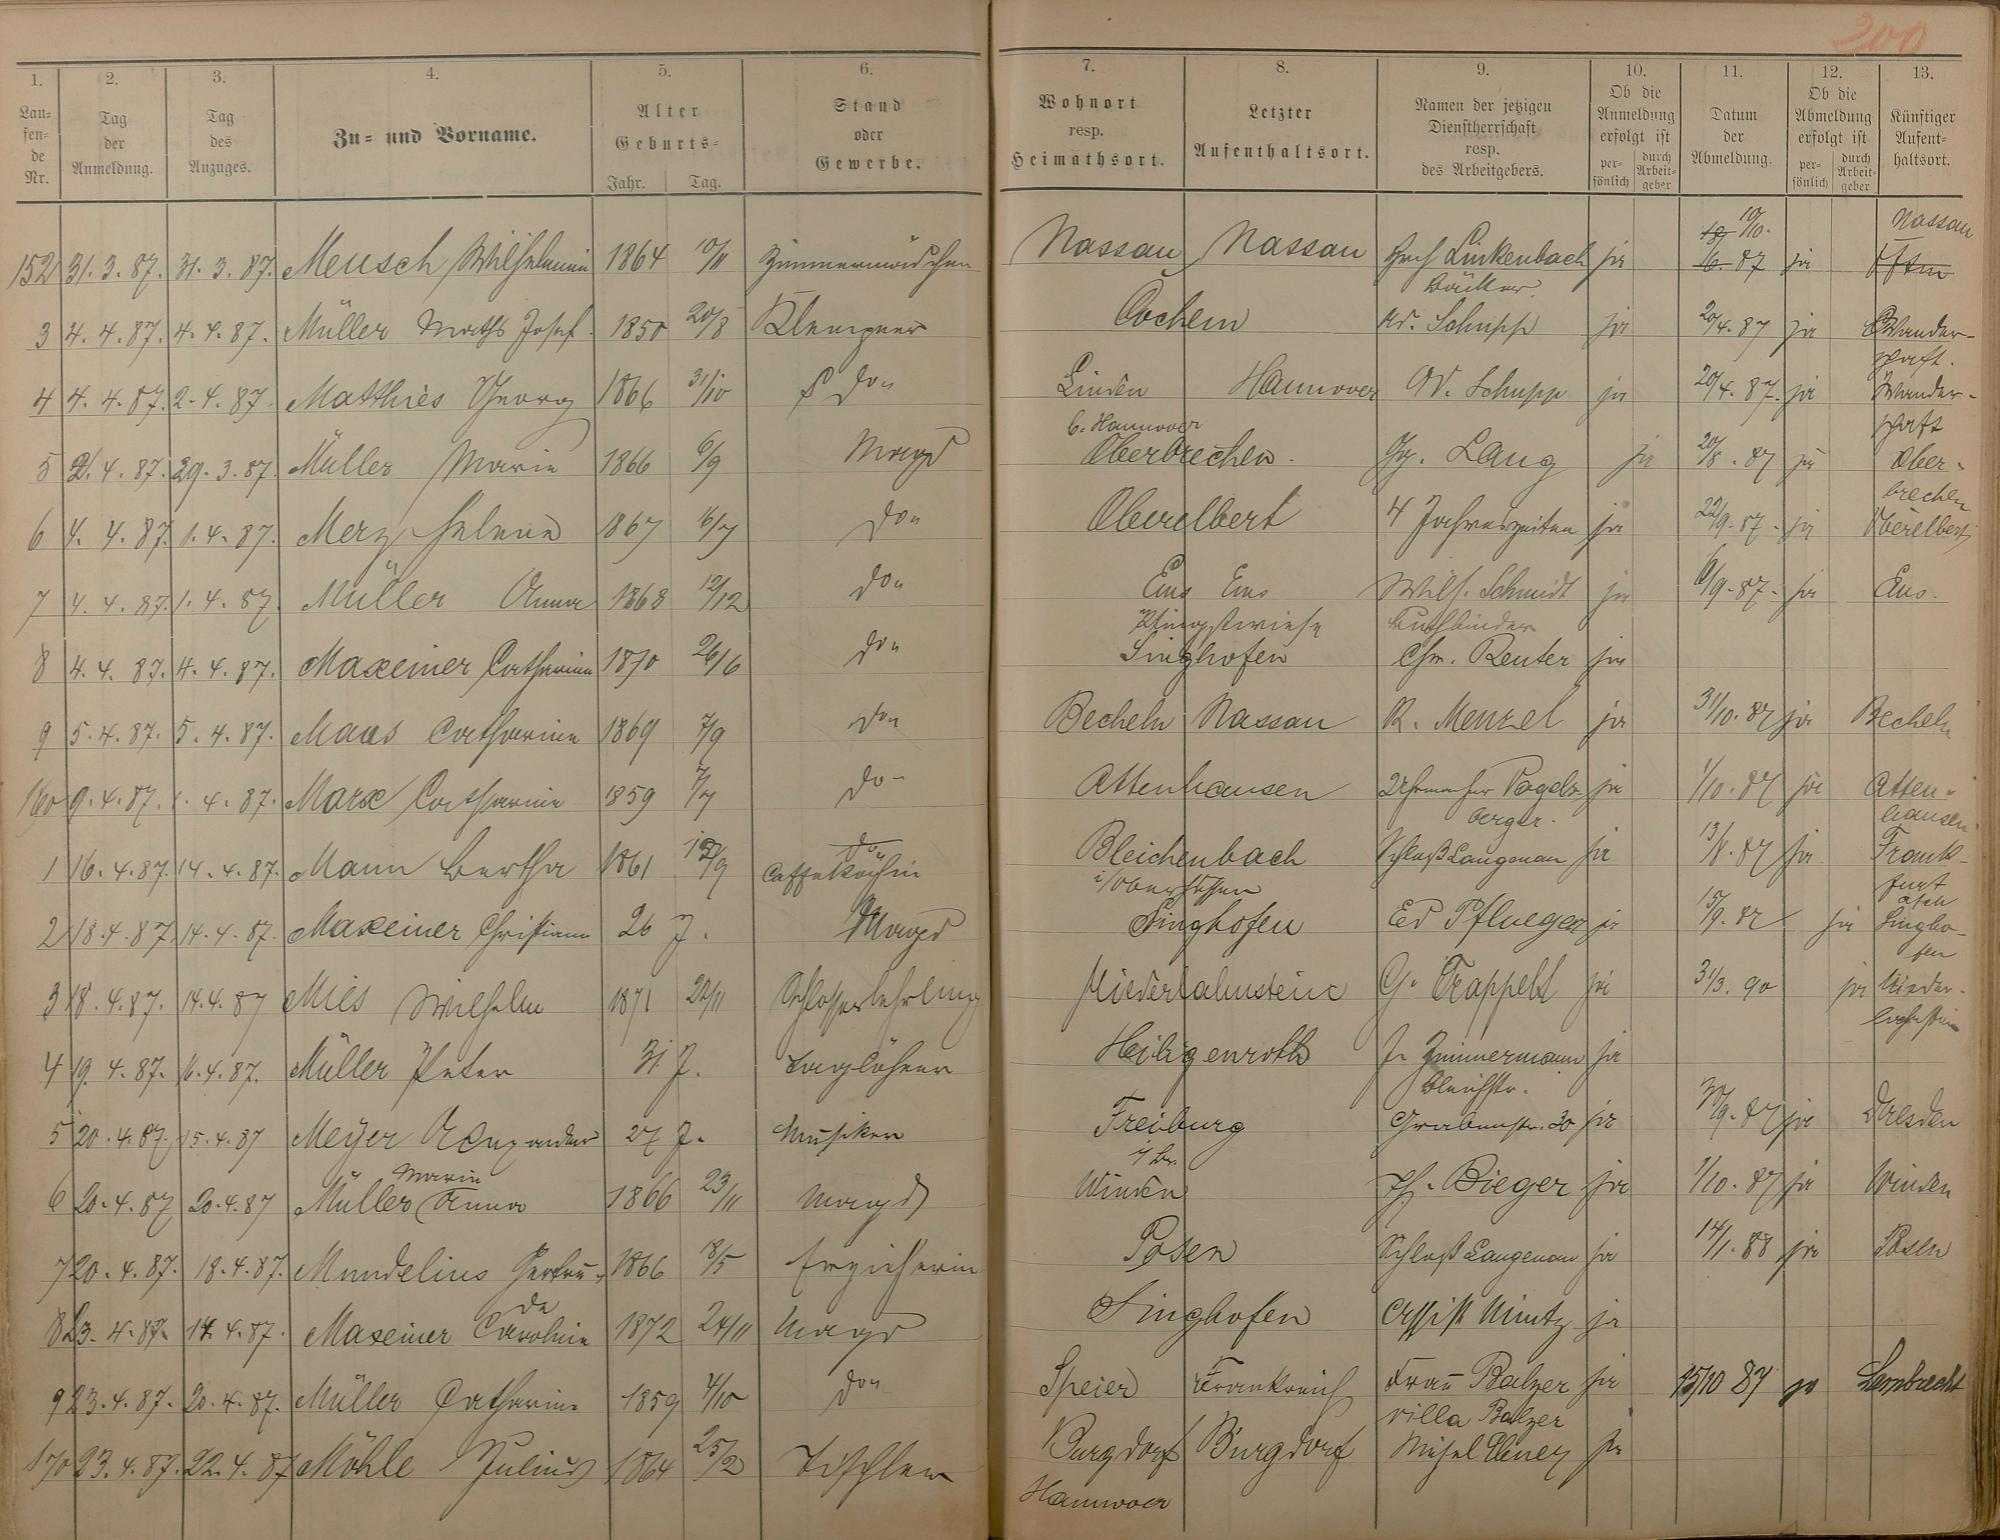 200
1. 2. 3. 4. 5. 6. 7. 8. 9. 10. 11. 12. 13.
Lau=fen=de Nr. Tag der Anmeldung. Tag des Anzuges. Zu= und Vorname. Alter Geburts= Jahr. Tag. Stand oder Gewerbe. Wohnort resp. Heimathsort. Letzter Aufenthaltsort. Namen der jetzigen Dienstherrschaft resp. des Arbeitgebers. Ob die Anmeldung erfolgt ist per=sönlich durch Arbeit=geber Datum der Abmeldung. Ob die Abmeldung erfolgt ist per=sönlich durch Arbeit=geber Künftiger Aufent=haltsort.
152 31. 3. 87. 31. 3. 87. Meusch Wilhelmine 1864 10/11 Zimmermädchen Nassau Nassau Linkenbach Bäcker ja 10/10. 87 ja Nassau
3 4. 4. 87. 4. 4. 87. Müller Maths Josef 1850 20/8 Klempner Cochem Ad. Schupp ja 20/4. 87 ja Wander-schaft.
4 4. 4. 87. 2. 4. 87. Matthies Georg 1866 31/10 do Linden b. Hannover Hannover Ad. Schupp ja 20/4. 87. ja Wander-schaft
5 2. 4. 87. 29. 3. 87. Müller Marie 1866 6/9 Magd Oberbrechen. Gg. Lang ja 20/8. 87 ja Ober-brechen
6 4. 4. 87. 1. 4. 87. Merz Helene 1867 16/7 do Oberelbert 4 Jahreszeiten ja 22/9. 87. ja Oberelbert
7 4. 4. 87. 1. 4. 87. Müller Anna 1868 12/12 do Ems Ems Pfingstwiese Wilh. Schmidt Buchbinder ja 6/9. 87. ja Ems.
8 4. 4. 87. 4. 4. 87. Maxeiner Catharine 1870 26/6 do Singhofen Chr. Reuter ja
9 5. 4. 87. 5. 4. 87. Maus Catharine 1869 7/9 do Becheln Nassau R. Menzel ja 31/10. 87 ja Becheln
160 9. 4. 87. 1. 4. 87. Marx Catharine 1859 7/7 do Attenhausen Uhrmacher Vogels-berger. ja 1/10. 87 ja Atten-hausen
1 16. 4. 87. 14. 4. 87. Mann Bertha 1861 Caffeköchin Bleichenbach i/Oberhessen Schloß Langenau ja 13/8. 87 ja Frank-furt
2 18. 4. 87. 14. 4. 87. Maxeiner Christiane 26 J. Magd Singhofen Ed Pflueger ja 15/9. 87 ja Singho-fen
3 18. 4. 87. 14. 4. 87 Mies Wilhelm 1871 22/11 Schlosserlehrling Niederlahnstein G. Trappelt ja 31/3. 90 ja Nieder-lahnstein
4 19. 4. 87. 16. 4. 87. Müller Peter 31 J. Taglöhner Heiligenroth Fr Zimmermann Bleichstr. ja
5 20. 4. 87. 15. 4. 87 Meyer Alexander 27 J. Musiker Freiburg i/Br. Grabenstr. 30 ja 30/9. 87 ja Dresden
6 20. 4. 87 20. 4. 87 Müller Marie Anna 1866 23/11 Magd Winden Ph. Bieger ja 1/10. 87 ja Winden
7 20. 4. 87. 18. 4. 87. Mundelius Gertru-de 1866 18/5 Erzieherin Posen Schloß Langenau ja 14/1. 88 ja Posen
8 23. 4. 87. 14. 4. 87. Maxeiner Caroline 1872 24/11 Magd Singhofen Assist Mintz ja
9 23. 4. 87. 20. 4. 87. Müller Catharine 1859 4/10 do Speier Frankreich Frau Balzer Villa Balzer ja 15/10 87 ja Lambrecht
170 23. 4. 87. 22. 4. 87 Möhle Julius 1864 25/2 Tischler Burgdorf Hannover Burgdorf ja